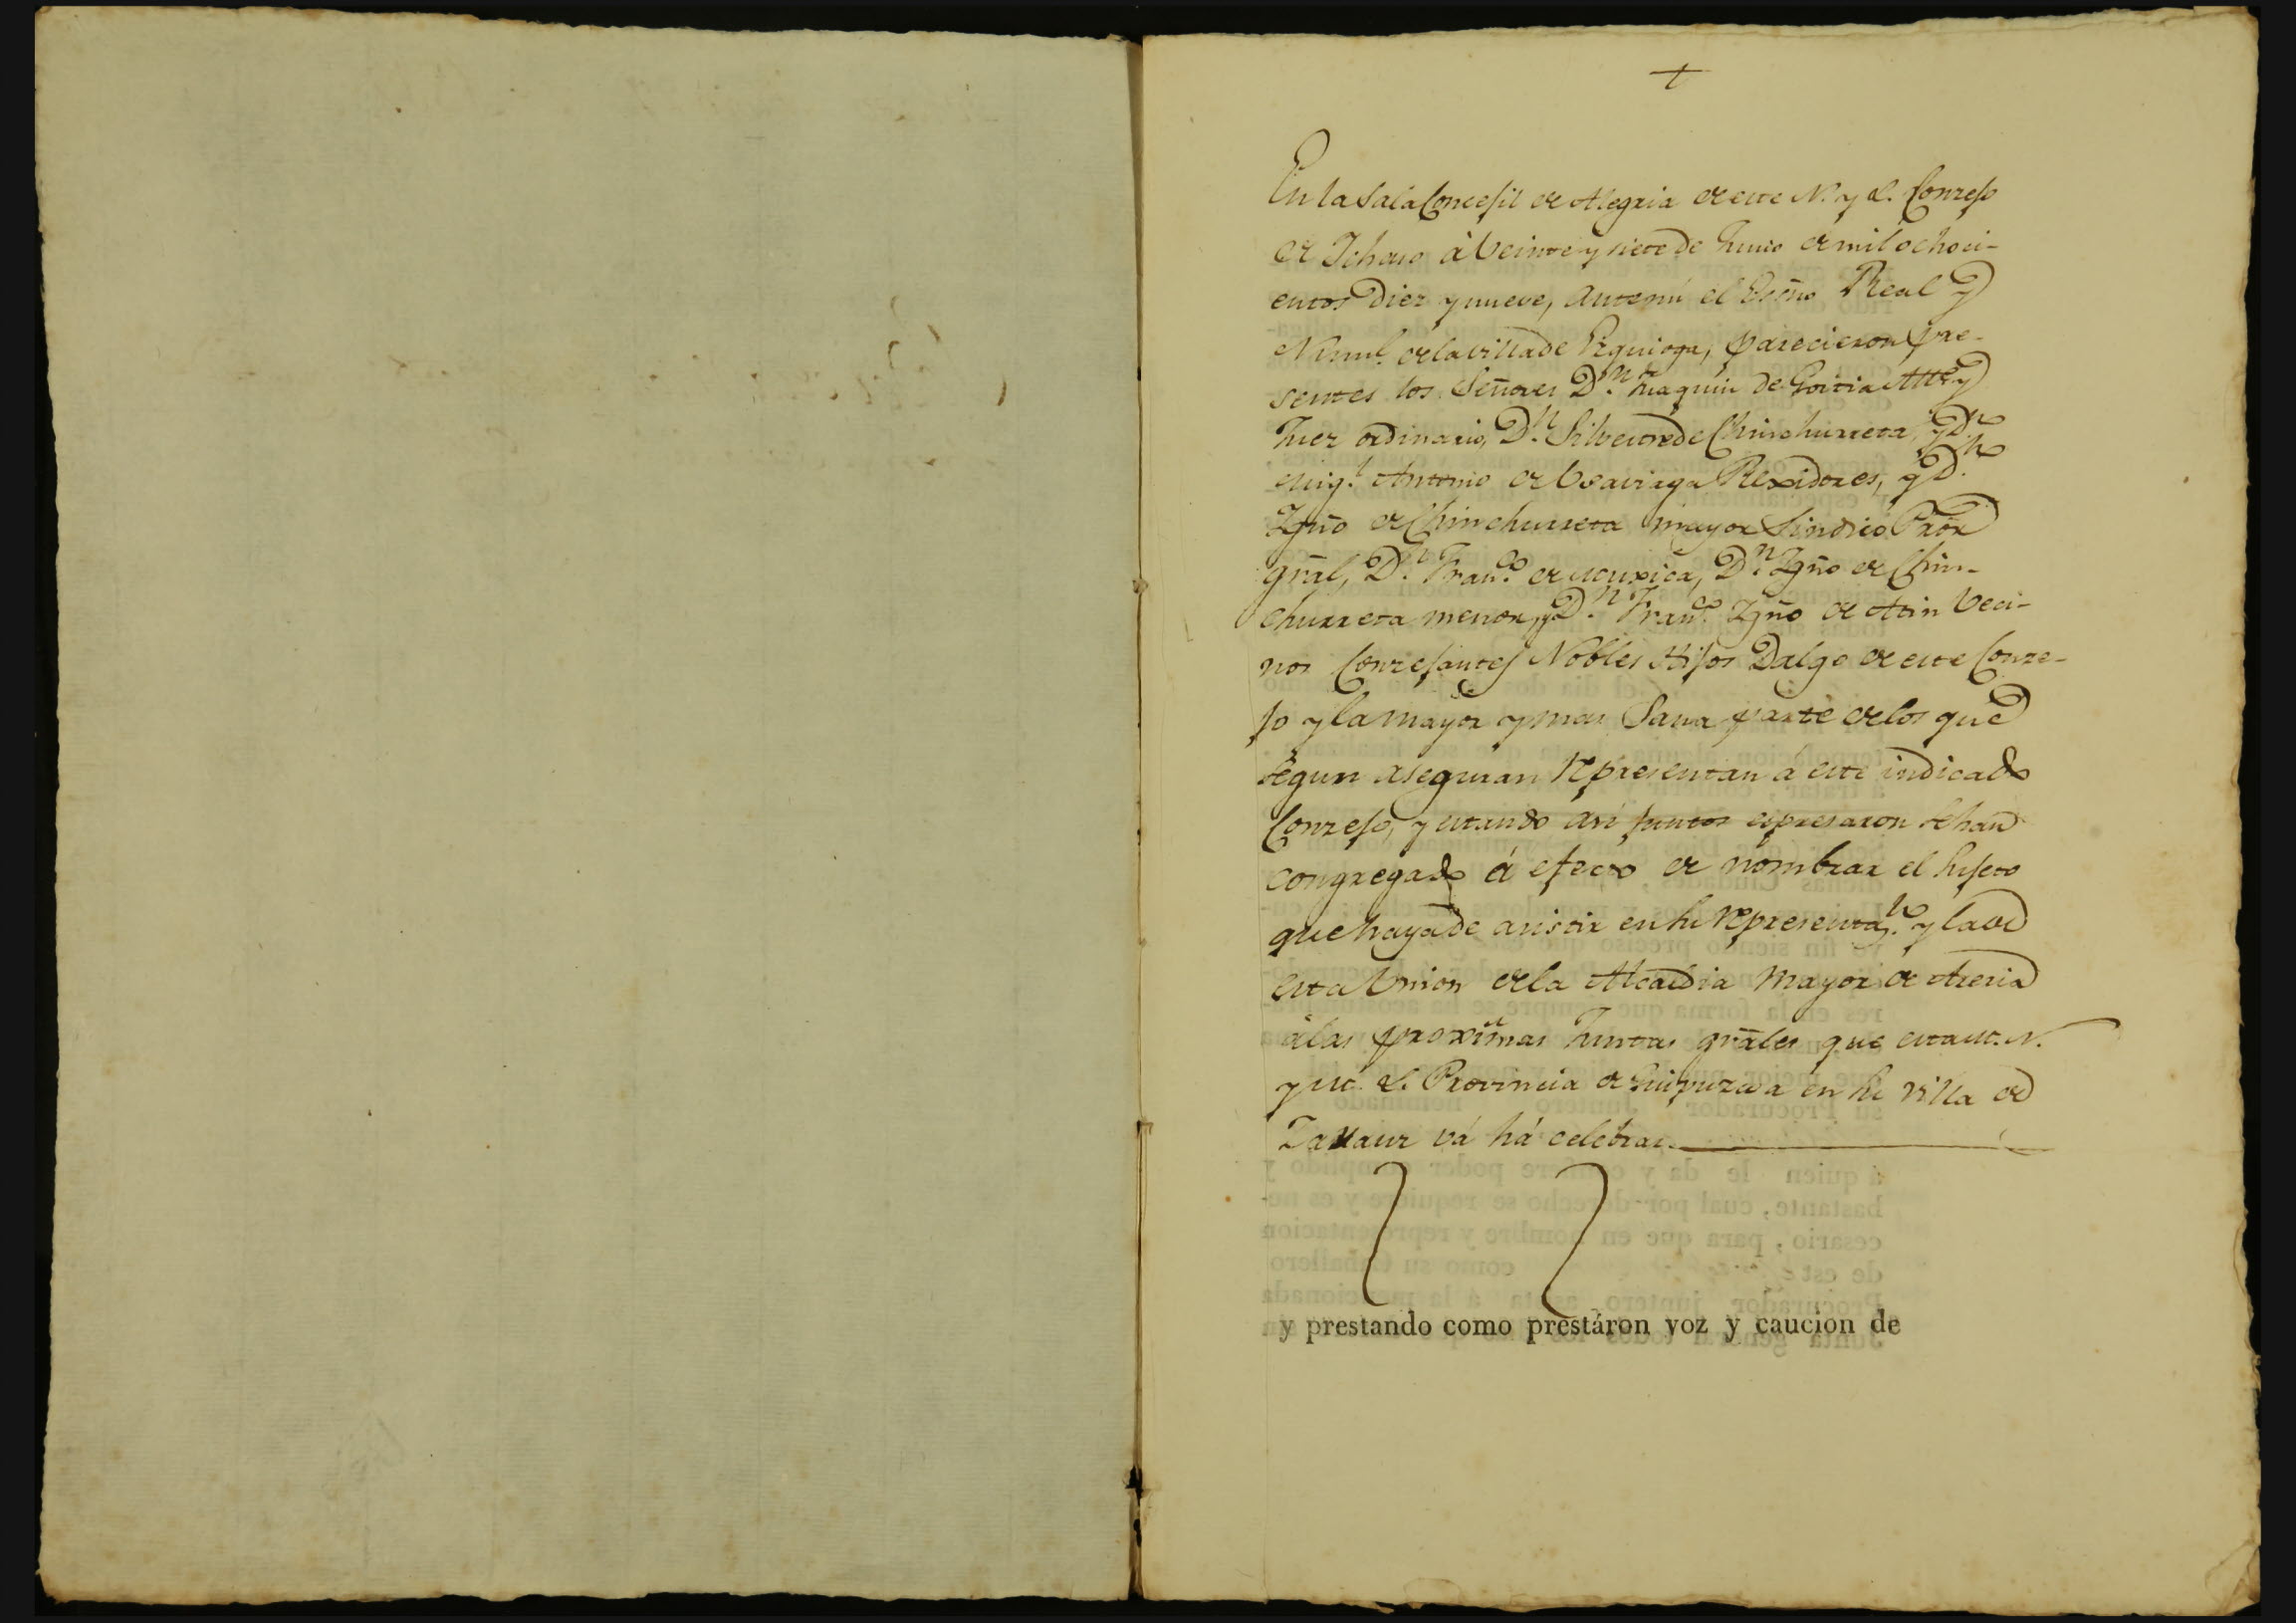 +
En la Sala Concejil de Alegria de este N. y L. Conzejo
de Ichaso à Veinte y siete de Junio de mil ochoci-
entos Diez y nueve, ante mi el Esc̃no Real y
Numl. de la villa de Ezquioga, parecieron pre-
sentes los Señores D.n Juaquin de Goitia Alle. y
Juez ordinario, D.n Silvestre de Chinchurreta, y D.n
Mig.l Antonio de Usavirga Rexidores, y D.n
Ygño de Chinchurreta mayor Sindico Prõr
grãl, D.n Fran.co de D.n Ygño de Chin-
churreta menor, y D.n Fran.co Ygño de Atin Veci-
nos Conzejantes Nobles Hijos Dalgo de este Conze-
jo y la mayor y mas Sana parte de los que
segun aseguran representan á este indicado
Conzejo, y estando asi juntos espresaron se han
congregado á efecto de nombrar el Sujeto
que haya de asistir en su representa.n y la de
esta Union de la Alcaldia Mayor de Areria
à las proxim̃as Juntas grãles que esta M. N.
y M. L. Provincia de Guipuzcoa en su villa de
Zarauz vá há celebrar.
y prestando como prestáron voz y caucion de